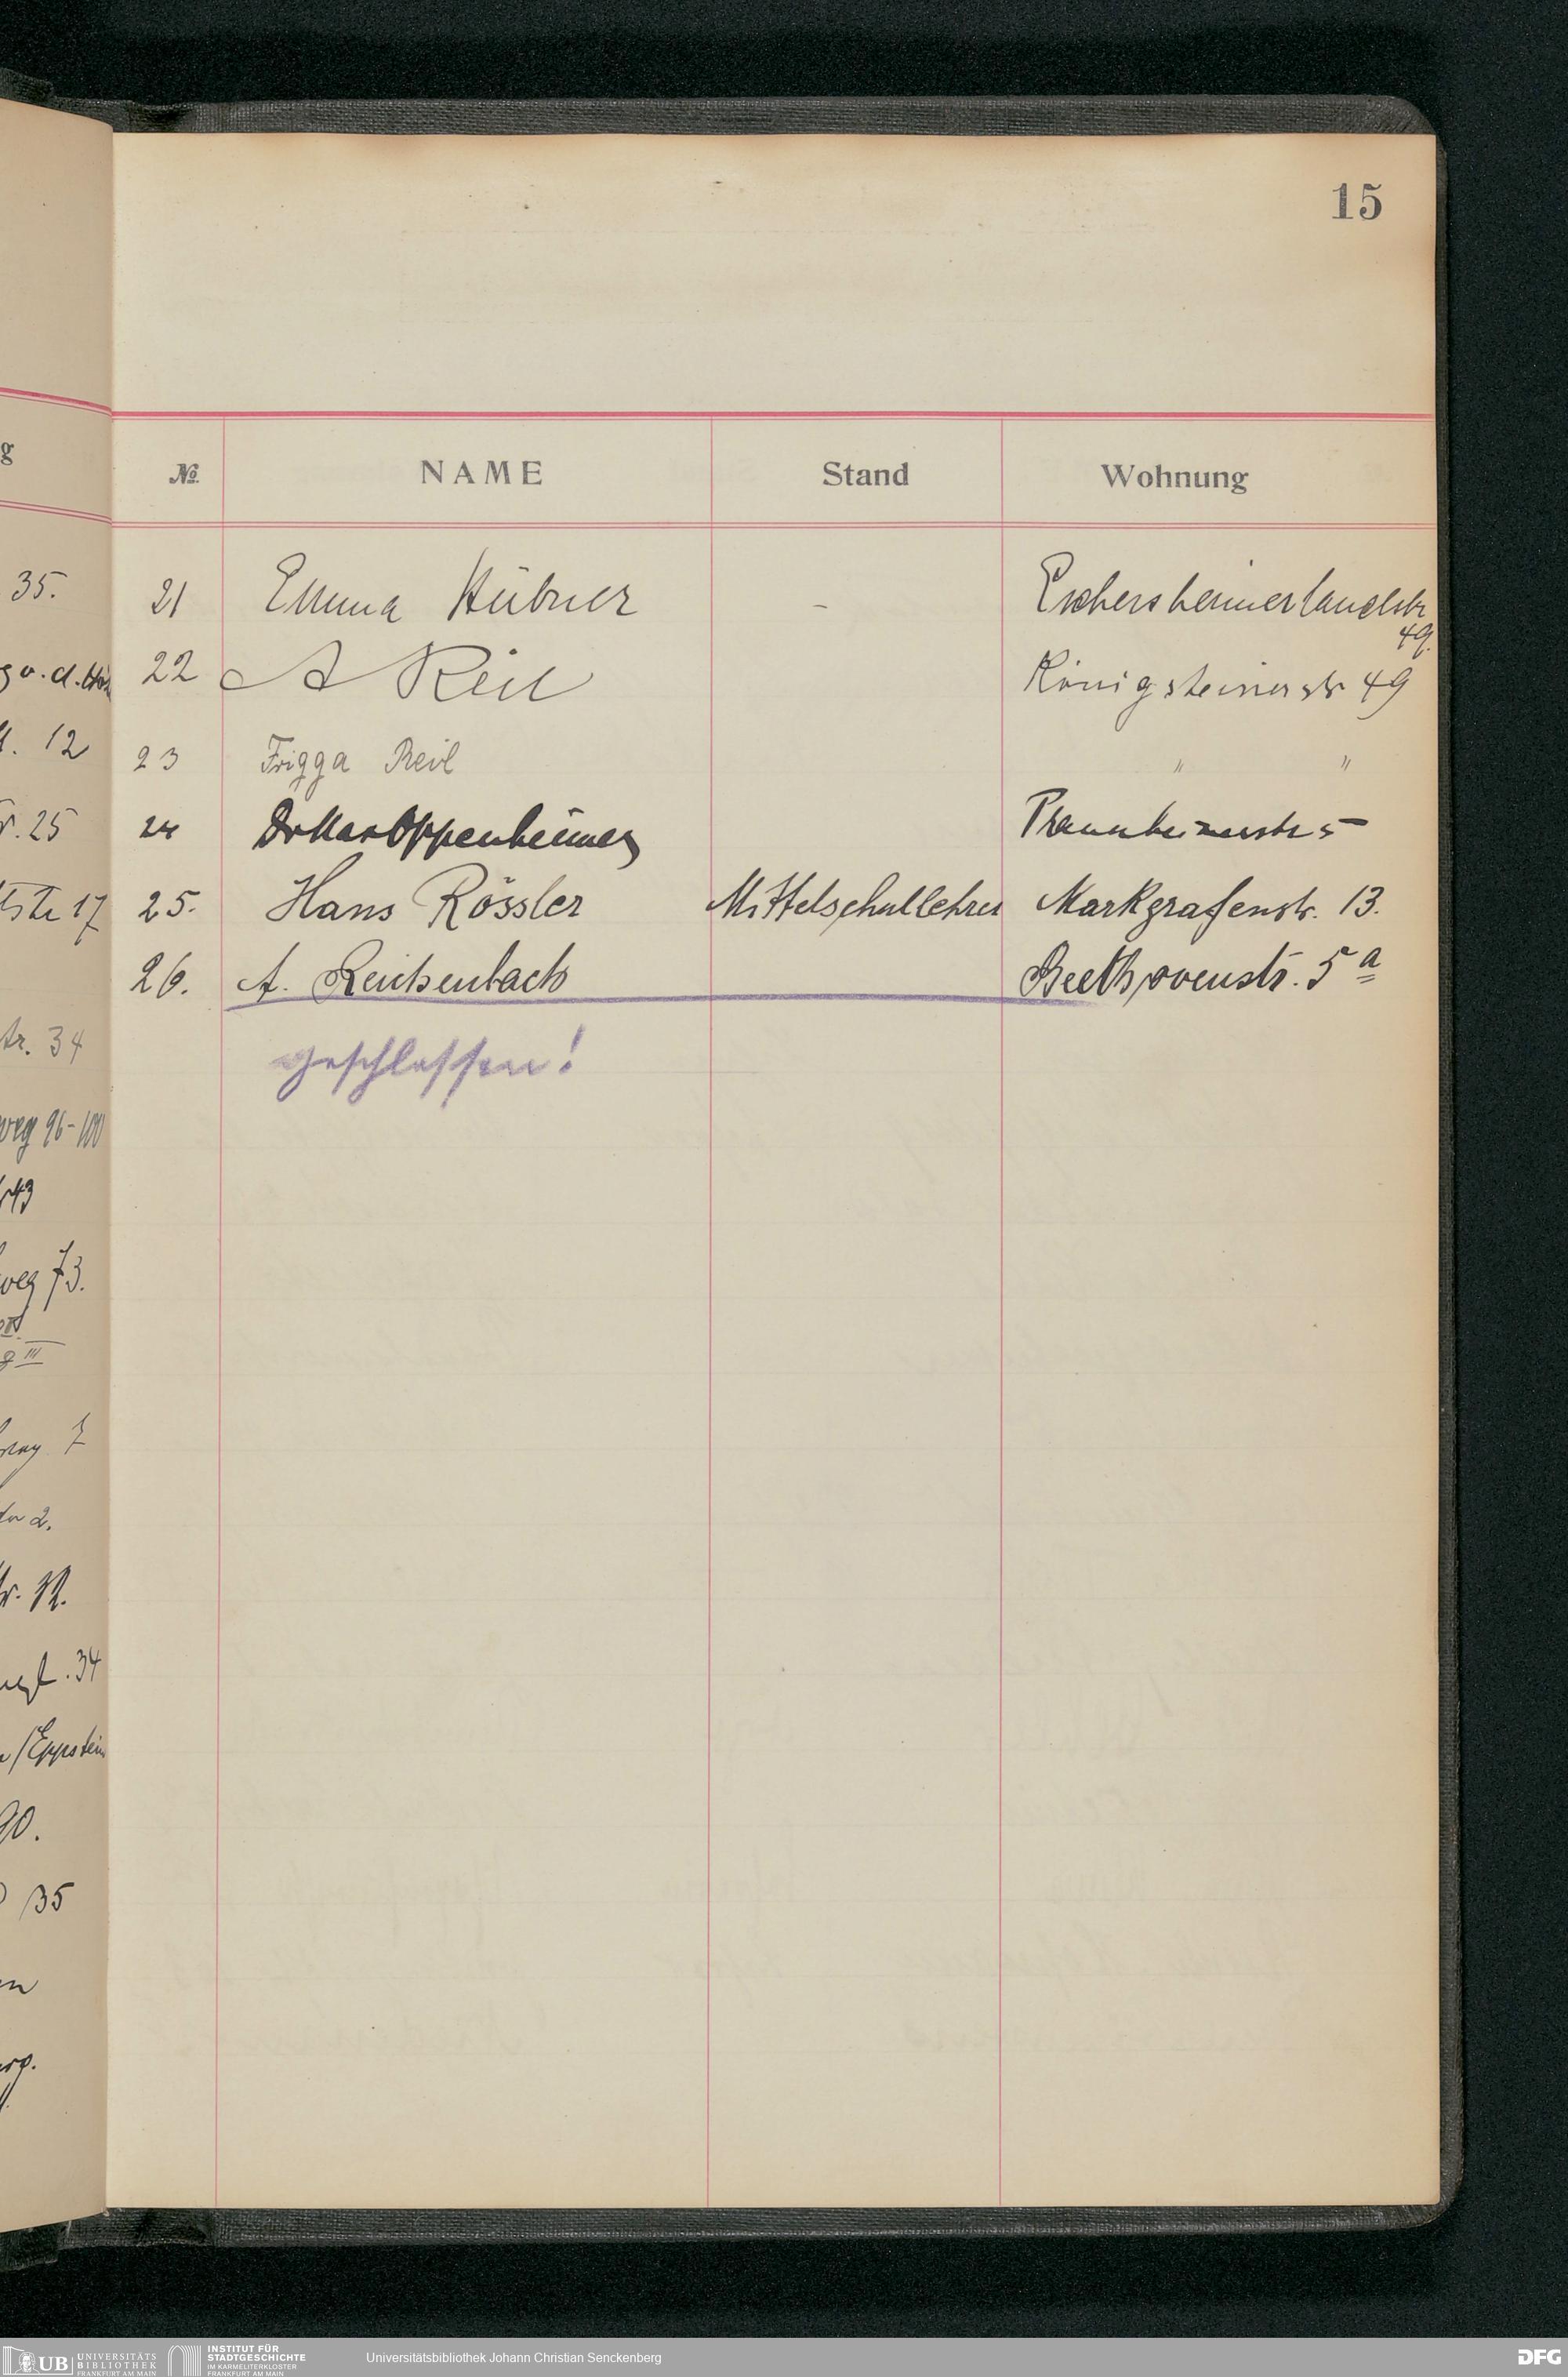 15
g
№ NAME Stand Wohnung
35.
21 Emma Hübner – Eschersheimerlandstr
49.
22 A Reil Königsteinerstr 49
12
23 Frigga Reil " "
25
24 Dr Max Oppenheimer 5
17
25. Hans Rössler Mittelschullehrer Markgrafenstr. 13.
26. A. Reichenbach Beethovenstr. 5 a
geschlossen!
tr. 34
weg 96-100
43
weg 73.
g III
7
2.
34
/Eppstein
90.
35
UB UNIVERSITÄTS
BIBLIOTHEK
FRANKFURT AM MAIN
INSTITUT FÜR
STADTGESCHICHTE
IM KARMELITERKLOSTER
FRANKFURT AM MAIN
Universitätsbibliothek Johann Christian Senckenberg
DFG